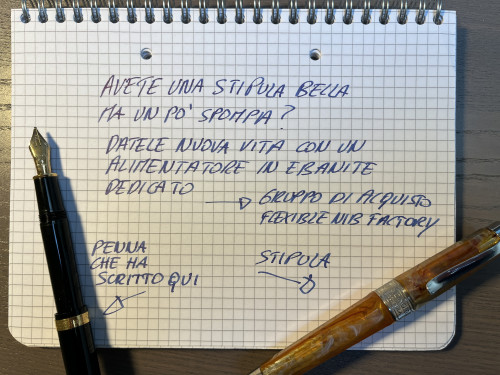 AVETE UNA STIPULA BELLA
MA UN PO' SPOMPA?
DATELE NUOVA VITA CON UN
ALIMENTATORE IN EBANITE
DEDICATO
GRUPPO DI ACQUISTO
FLEXIBLE NIB FACTORY
PENNA
CHE HA
SCRITTO QUI
STIPULA